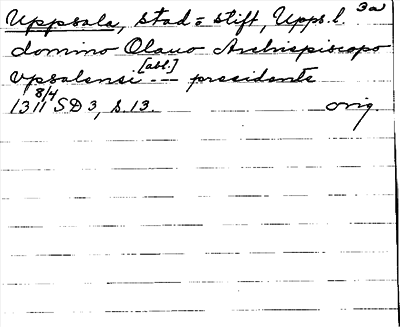 Uppsala, stad = stift, Upps. l. 3a
domino Olauo Archiepiscopo
vpsalensi [abl.] --- presidante
1311 8/4 SD 3, s. 13. orig.